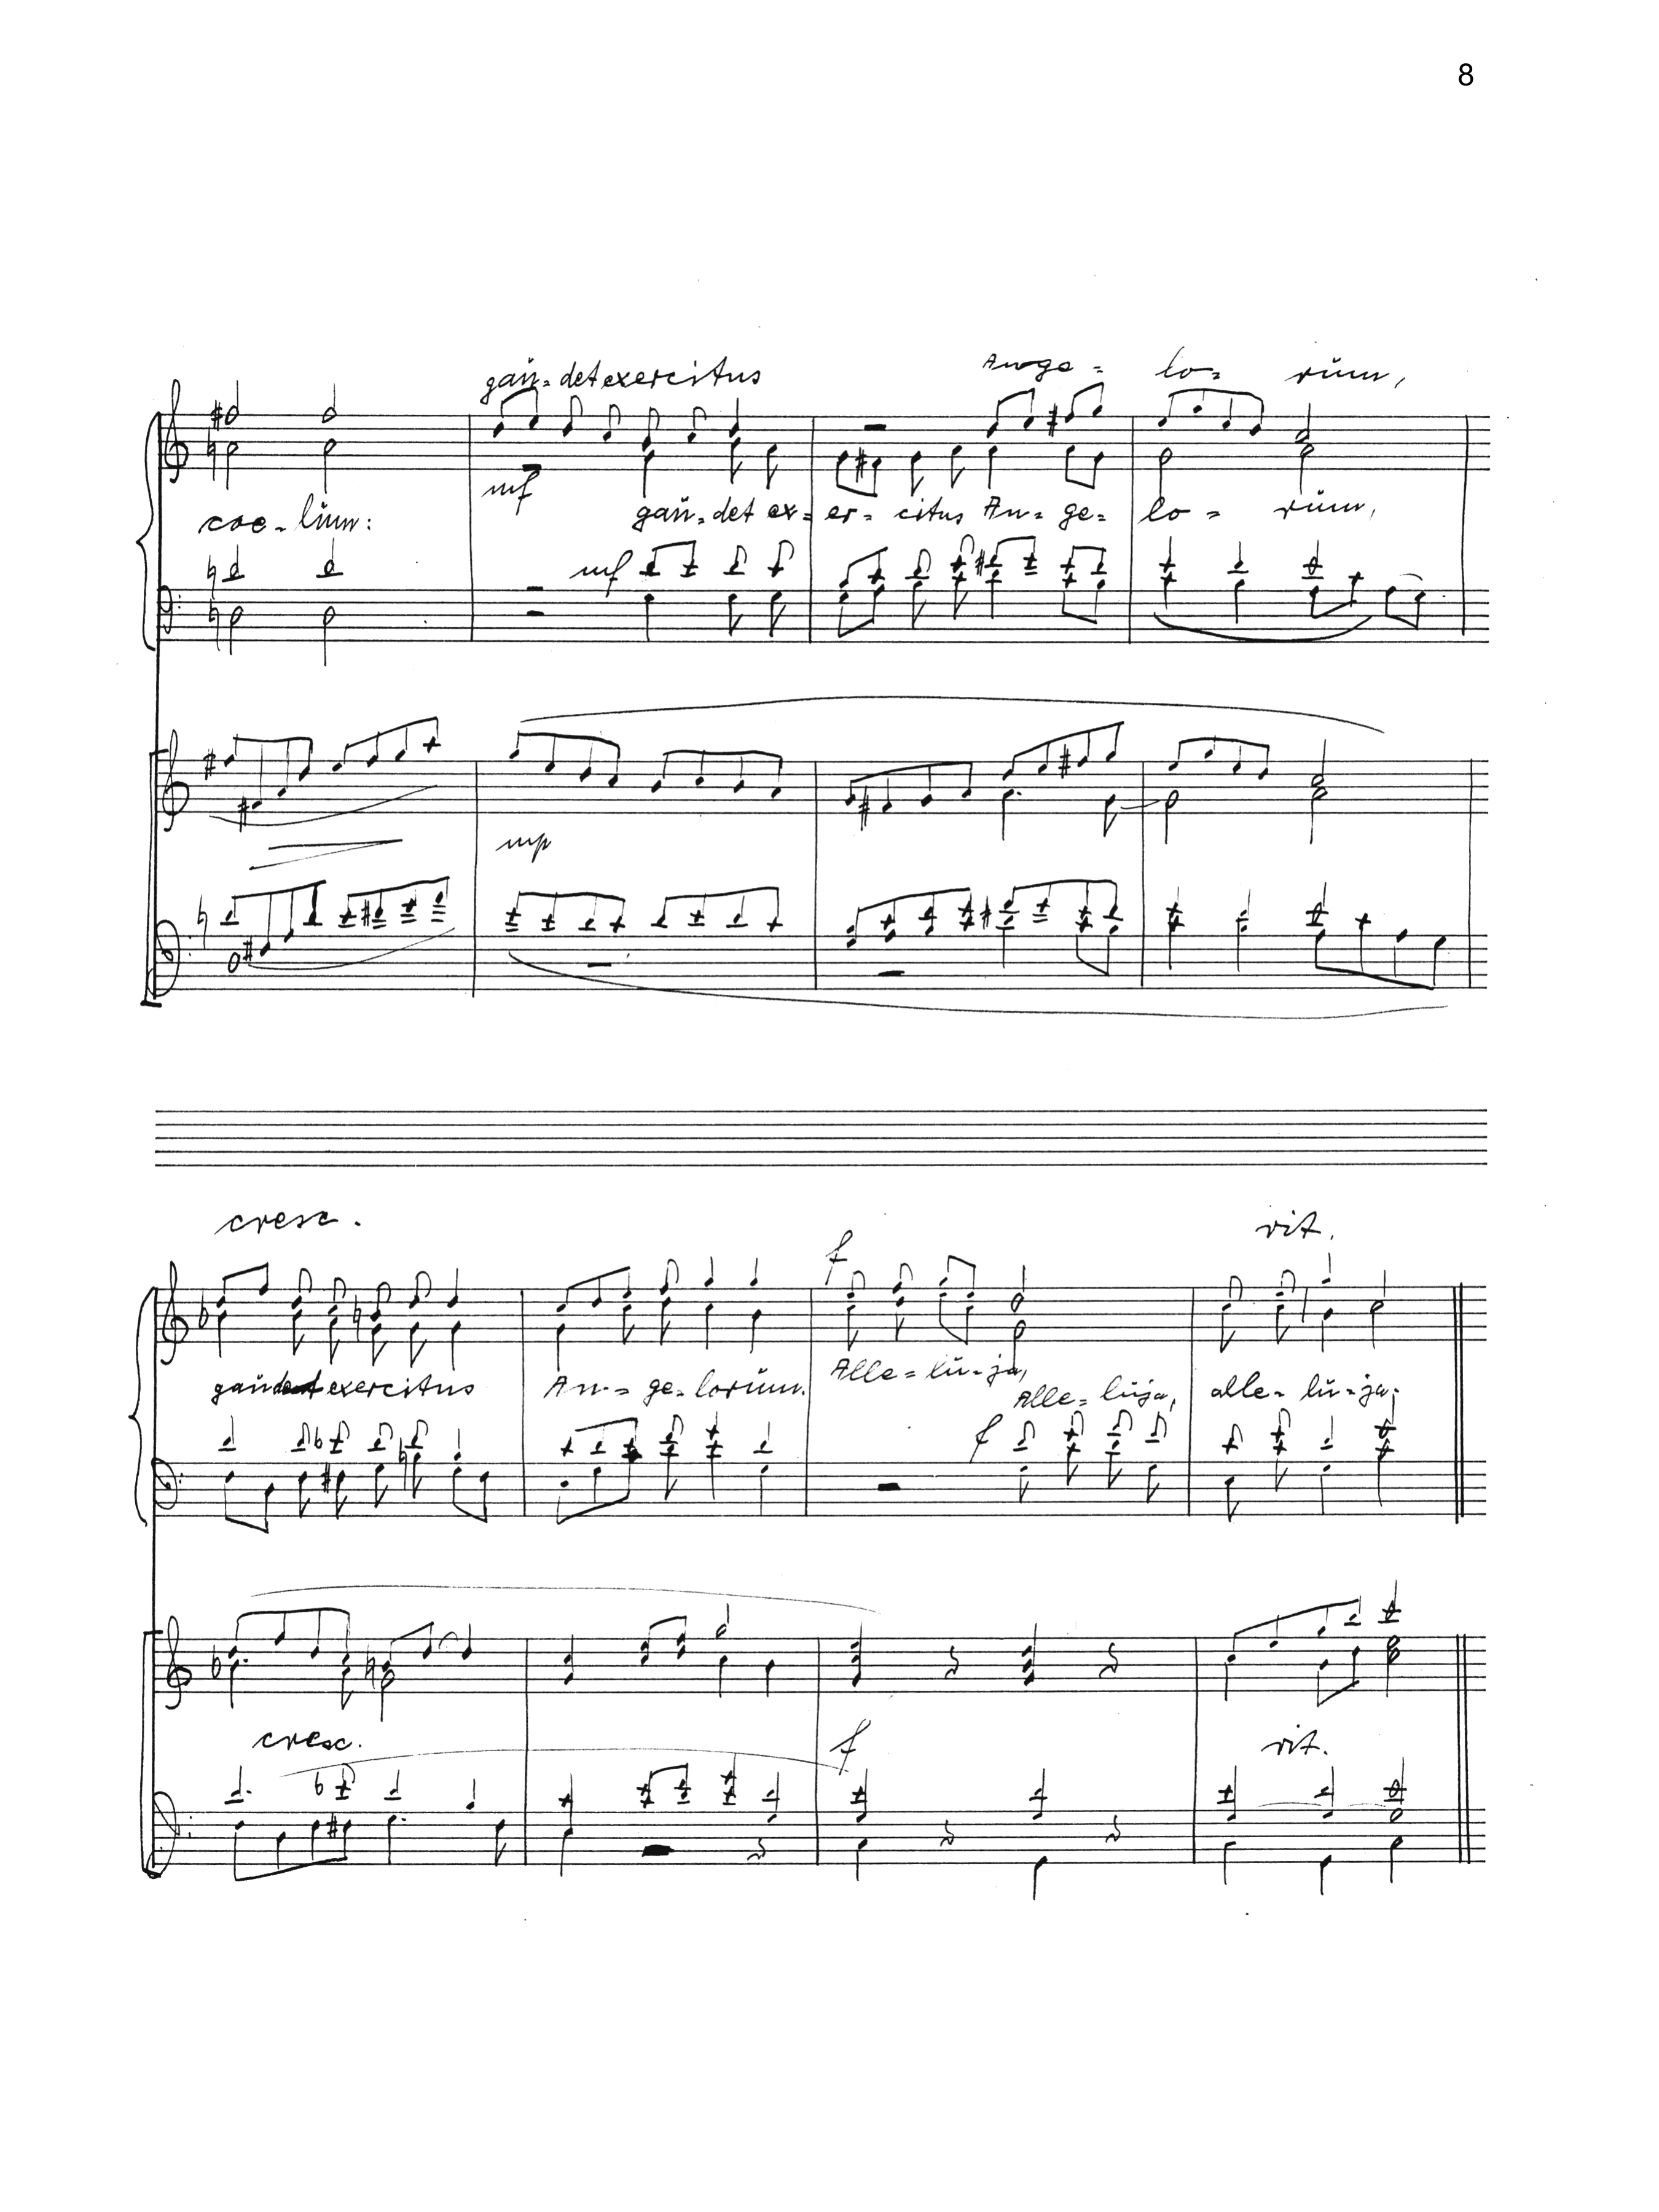 8
gaŭ-det exercitus Ange-lo-rŭm,
mf
coe-lŭm: gaŭ-det ex-er-citus An-ge-lo-rŭm,
mf
mp
cresc. rit.
f
gaŭdet exercitus An-ge-lorŭm. Alle-lŭ-ja,
Alle-lŭja, alle-lŭ-ja.
f
cresc. f rit.